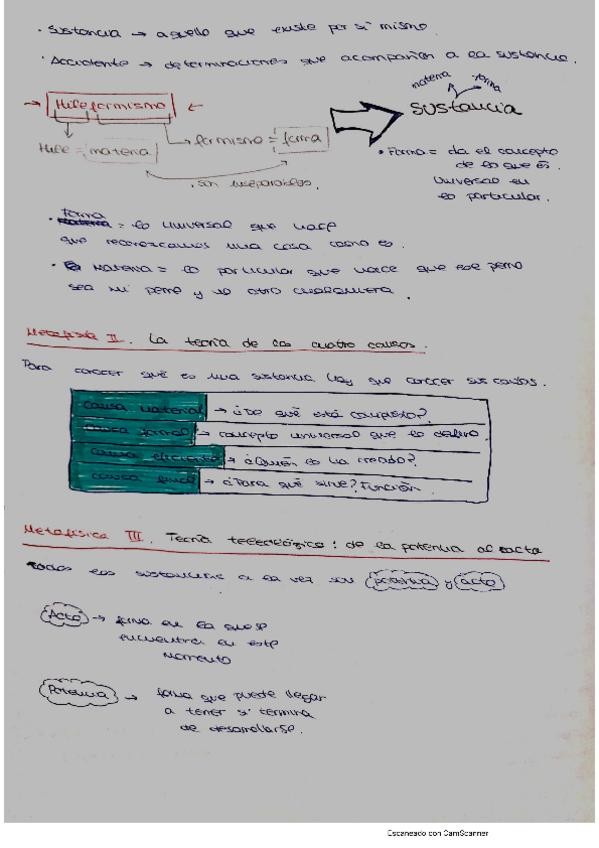 · Sustancia → aquello que existe por sí mismo.
· Accidente → determinaciones que acompañan a la sustancia.
materia forma
→ Hileformismo ←
SUSTANCIA
Hile = materia
formismo = forma
son inseparables.
• Forma = da el concepto
de lo que es.
Universal en
lo particular.
• forma = lo universal que hace
que reconozcamos una cosa como es.
• Materia = lo particular que hace que ese perro
sea mi perro y no otro cualquiera.
Metafísica II. La teoría de las cuatro causas.
Para conocer qué es una sustancia hay que conocer sus causas.
causa material → ¿De qué está compuesto?
causa formal → concepto universal que lo define.
causa eficiente → ¿Quién lo ha creado?
causa final → ¿Para qué sirve? Función.
Metafísica III. Teoría teleológica: de la potencia al acto
todas las sustancias a la vez son potencia y acto
Acto → forma en la que se
encuentra en este
momento
Potencia → forma que puede llegar
a tener si termina
de desarrollarse.
Escaneado con CamScanner